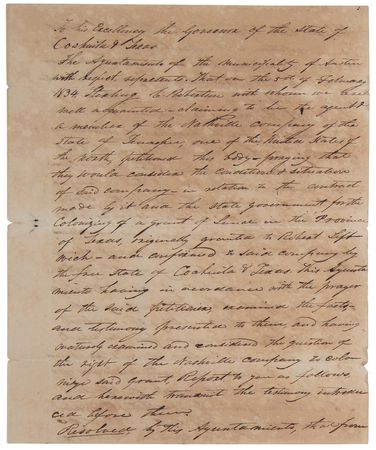 To his Excellency the Governor of the State of
Coahuila & Texas
The Ayuntamiento of the Municipality of Austin
with respect represents That on the 5th of February
1834 Sterling C. Robertson with whom we are
well acquainted claiming to be the agent &
a member of the Nashville company of the
State of Tennessee, one of the United States of
the North, petitioned this body praying that
they would consider the condition & situation
of said company in relation to the contract
made by it and the State government for the
Colonizing of a grant of Land in the Province
of Texas, originally granted to Robert Left
wich and confirmed to said company by
the free State of Coahuila & Texas This Ayunta
miento having in accordance with the prayer
of the said petitioner examined the facts
and testimony presented to them and having
maturely examined and considered the question of
the right of the Nashville company to colo
nize said grant, Report to you as follows,
and herewith transmit the testimony introdu
ced before them.
Resolved by this Ayuntamiento, that from